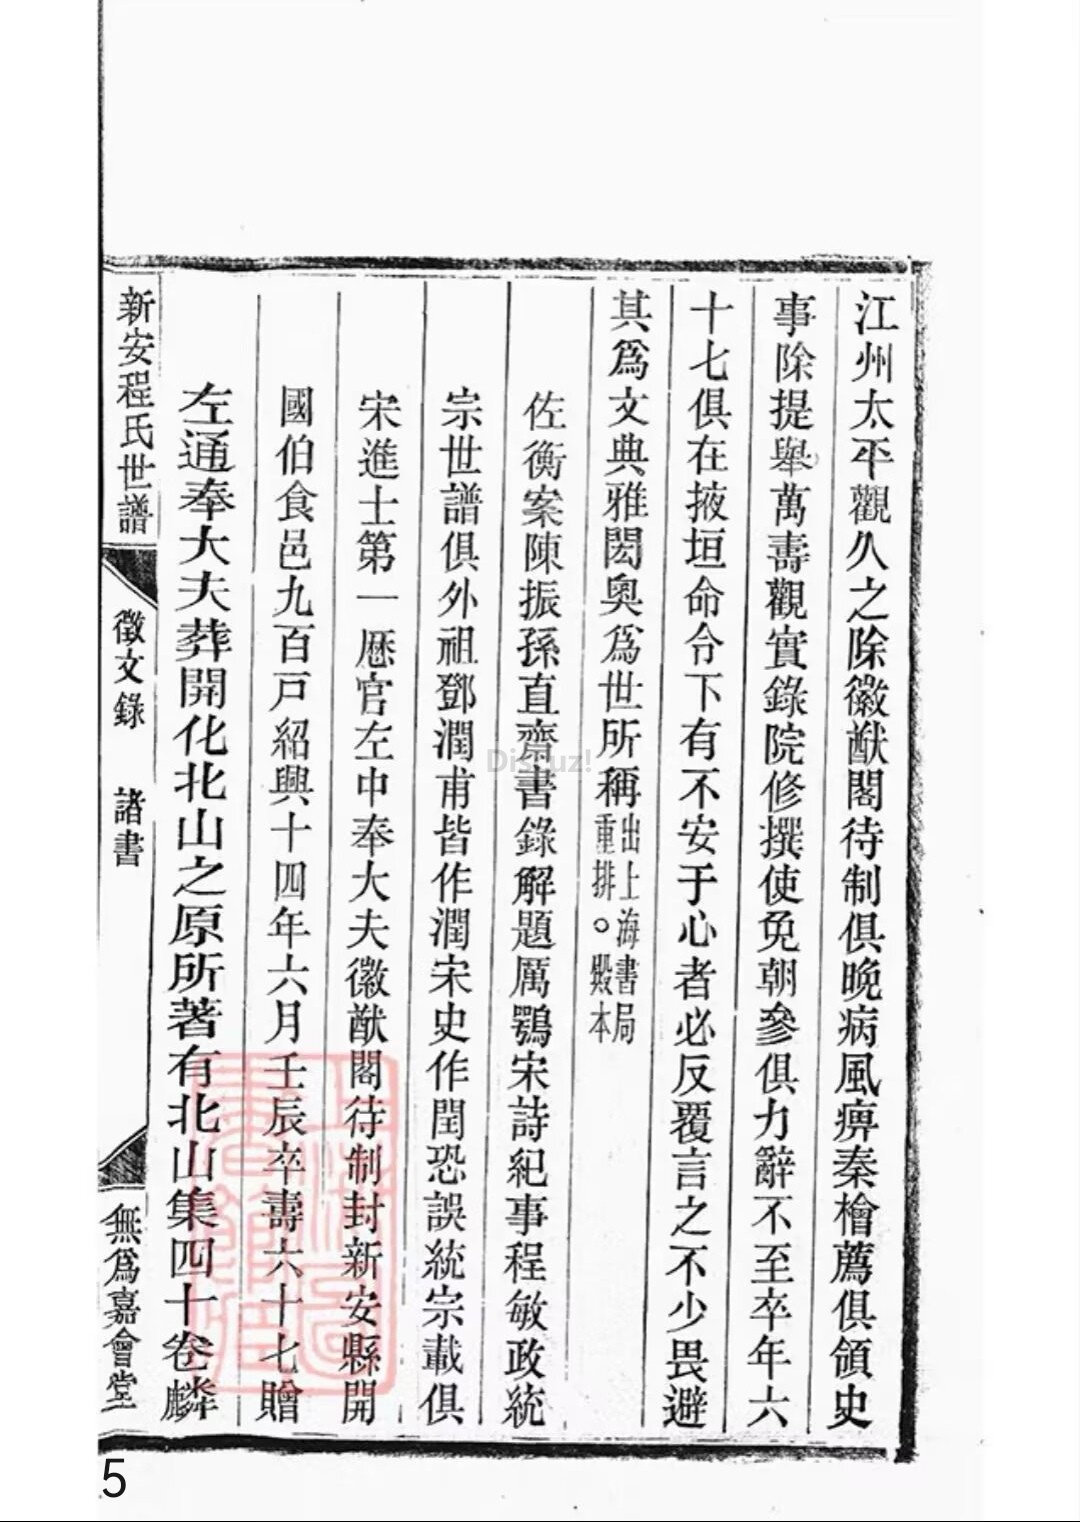 江州太平觀久之除徽猷閣待制俱晚病風痹秦檜薦俱領史
事除提舉萬壽觀實錄院修撰使免朝參俱力辭不至卒年六
十七俱在掖垣命令下有不安于心者必反覆言之不少畏避
其爲文典雅閎奧爲世所稱出上海書局
重排。殿本
佐衡案陳振孫直齋書錄解題厲鶚宋詩紀事程敏政統
宗世譜俱外祖鄧潤甫皆作潤宋史作閏恐誤統宗載俱
宋進士第一歷官左中奉大夫徽猷閣待制封新安縣開
國伯食邑九百戸紹興十四年六月壬辰卒壽六十七贈
左通奉大夫葬開化北山之原所著有北山集四十卷麟
新安程氏世譜
徵文錄 諸書
無爲嘉會堂
Discuz!
5